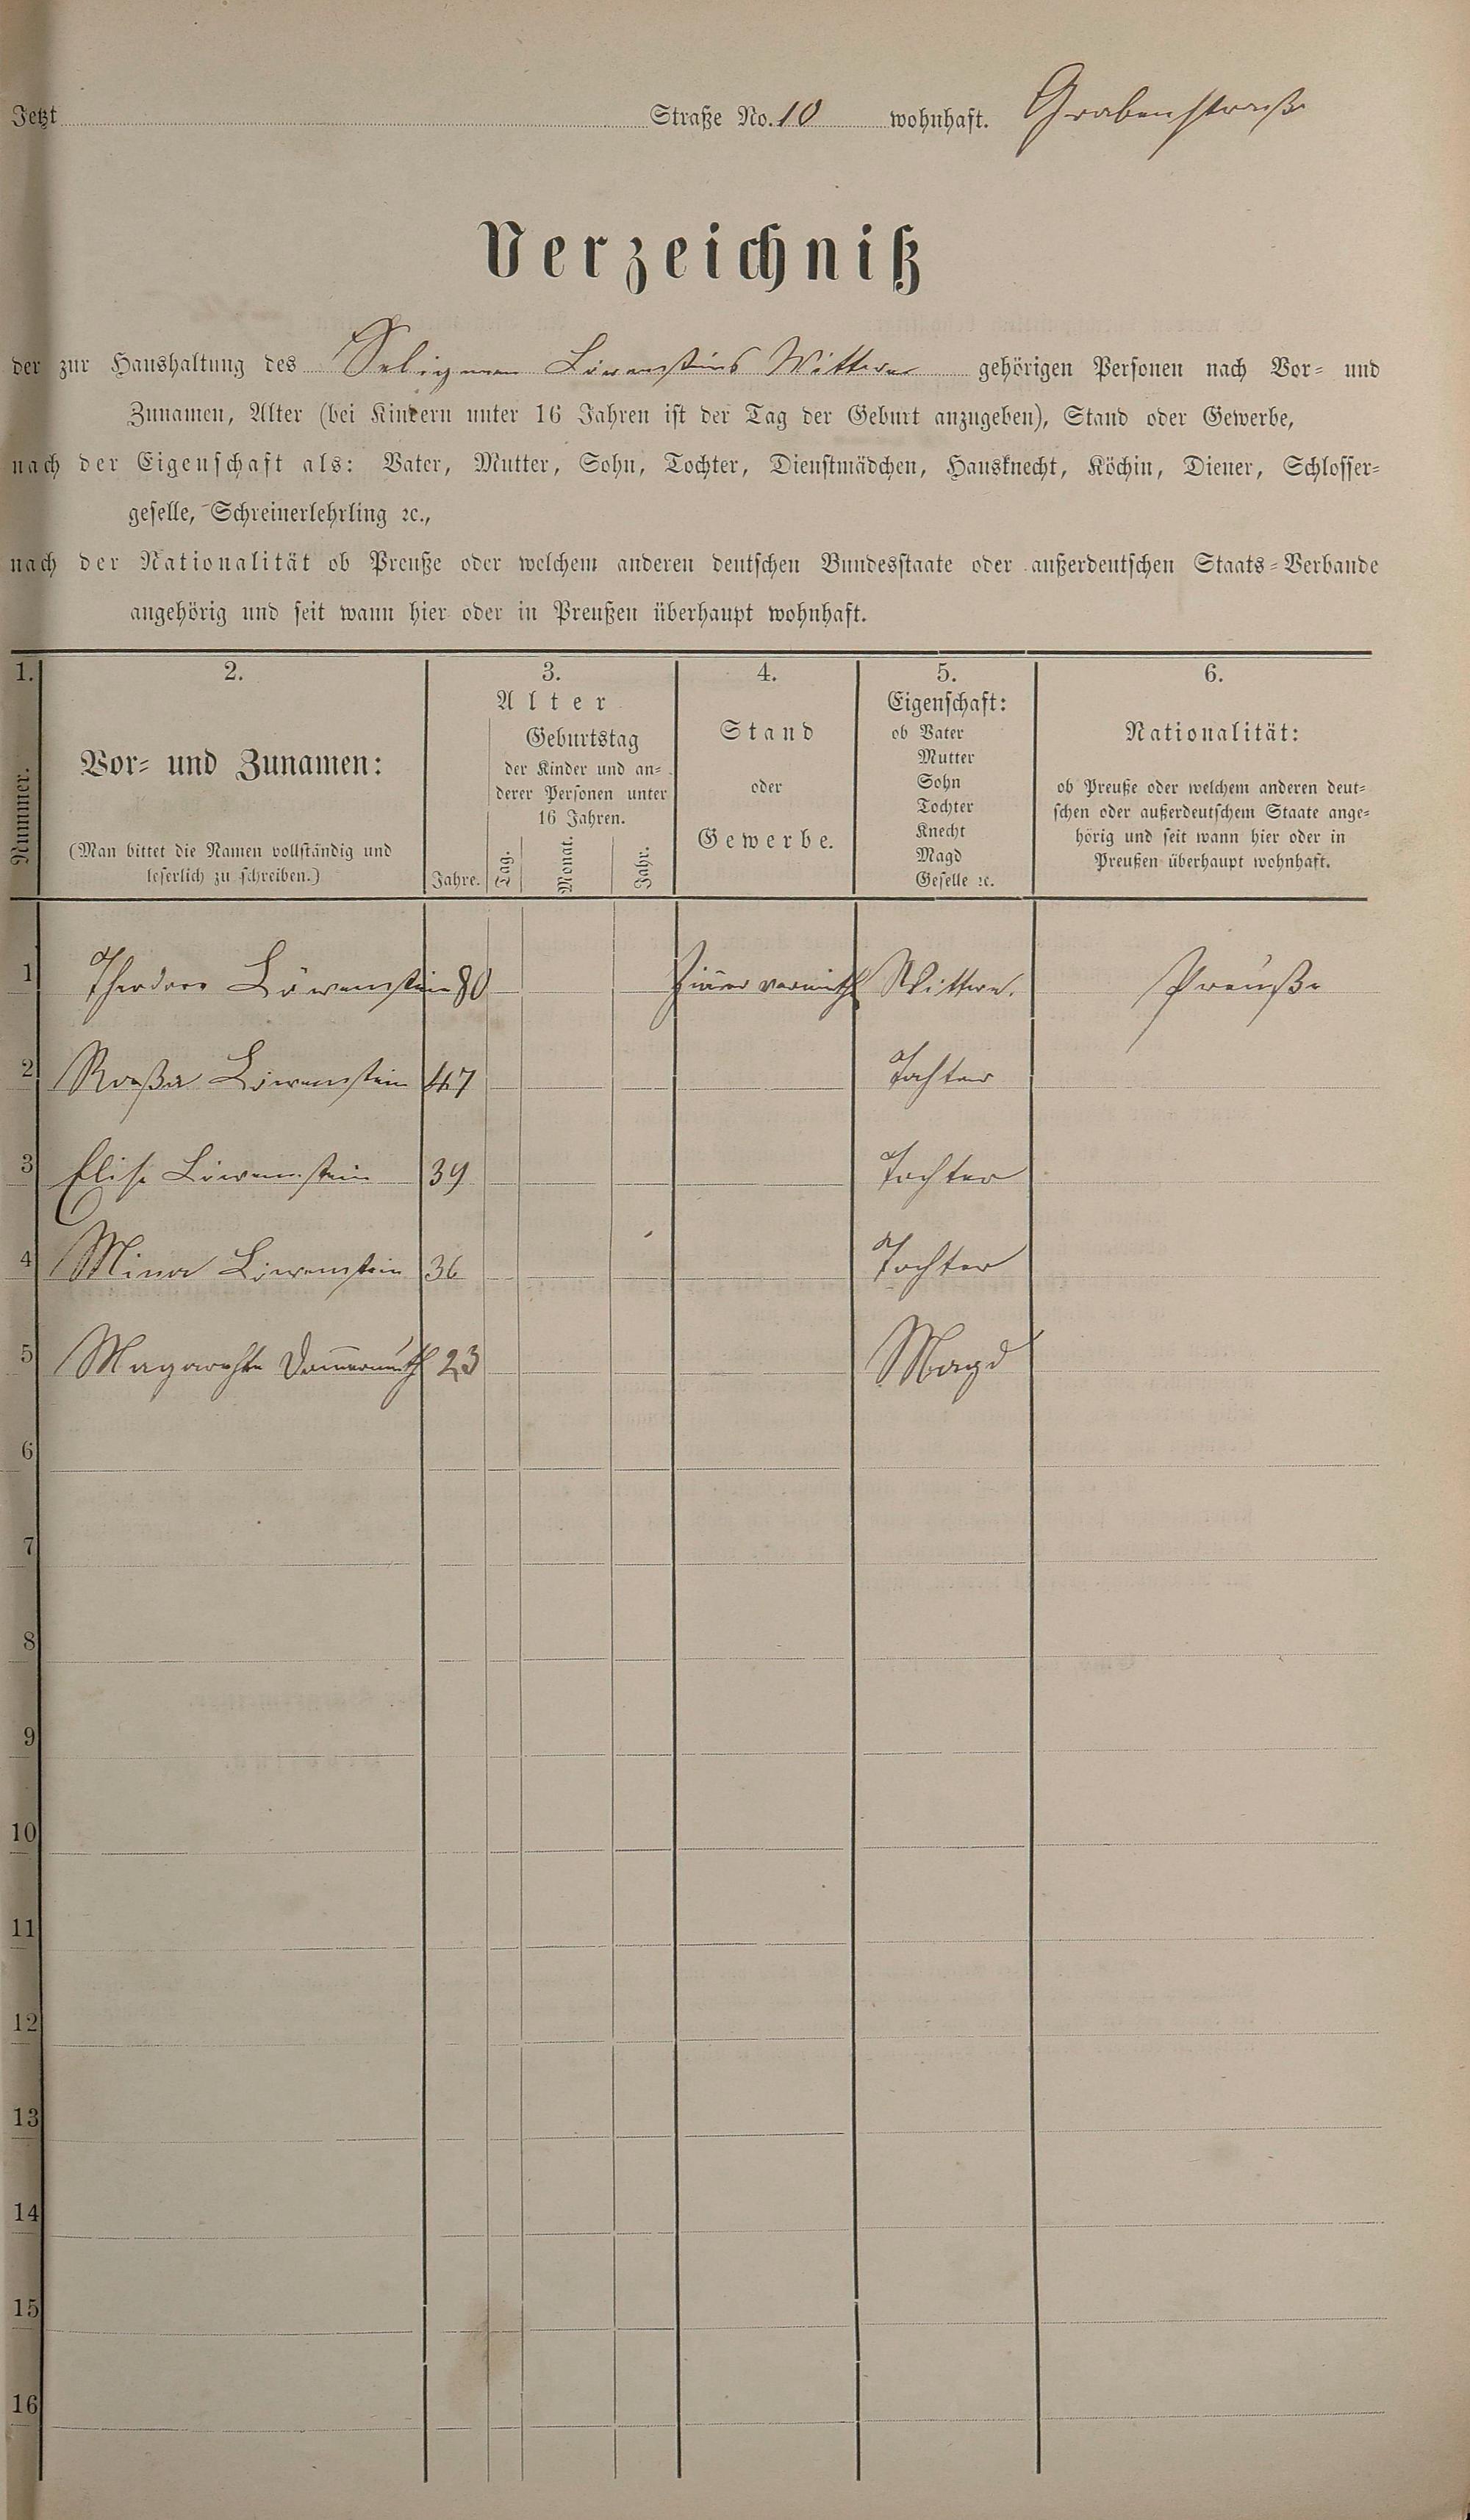 Jetzt Straße No. 10 wohnhaft. Grabenstraße
Verzeichniß
der zur Haushaltung des Seligmann Löwensteins Wittwe gehörigen Personen nach Vor- und
Zunamen, Alter (bei Kindern unter 16 Jahren ist der Tag der Geburt anzugeben), Stand oder Gewerbe,
nach der Eigenschaft als: Vater, Mutter, Sohn, Tochter, Dienstmädchen, Hausknecht, Köchin, Diener, Schlosser-
geselle, Schreinerlehrling ꝛc.,
nach der Nationalität ob Preuße oder welchem anderen deutschen Bundesstaate oder außerdeutschen Staats-Verbande
angehörig und seit wann hier oder in Preußen überhaupt wohnhaft.
1. 2. 3. 4. 5. 6.
Nummer.
Vor- und Zunamen:
(Man bittet die Namen vollständig und
leserlich zu schreiben.)
Alter
Jahre.
Geburtstag
der Kinder und an-
derer Personen unter
16 Jahren.
Tag. Monat. Jahr.
Stand
oder
Gewerbe.
Eigenschaft:
ob Vater
Mutter
Sohn
Tochter
Knecht
Magd
Geselle ꝛc.
Nationalität:
ob Preuße oder welchem anderen deut-
schen oder außerdeutschem Staate ange-
hörig und seit wann hier oder in
Preußen überhaupt wohnhaft.
1 Theodore Löwenstein 80 Wittwe. Preuße
2 Roßa Löwenstein 47 Tochter
3 Elise Löwenstein 39 Tochter
4 Mina Löwenstein 36 Tochter
5 23 Magd
6
7
8
9
10
11
12
13
14
15
16